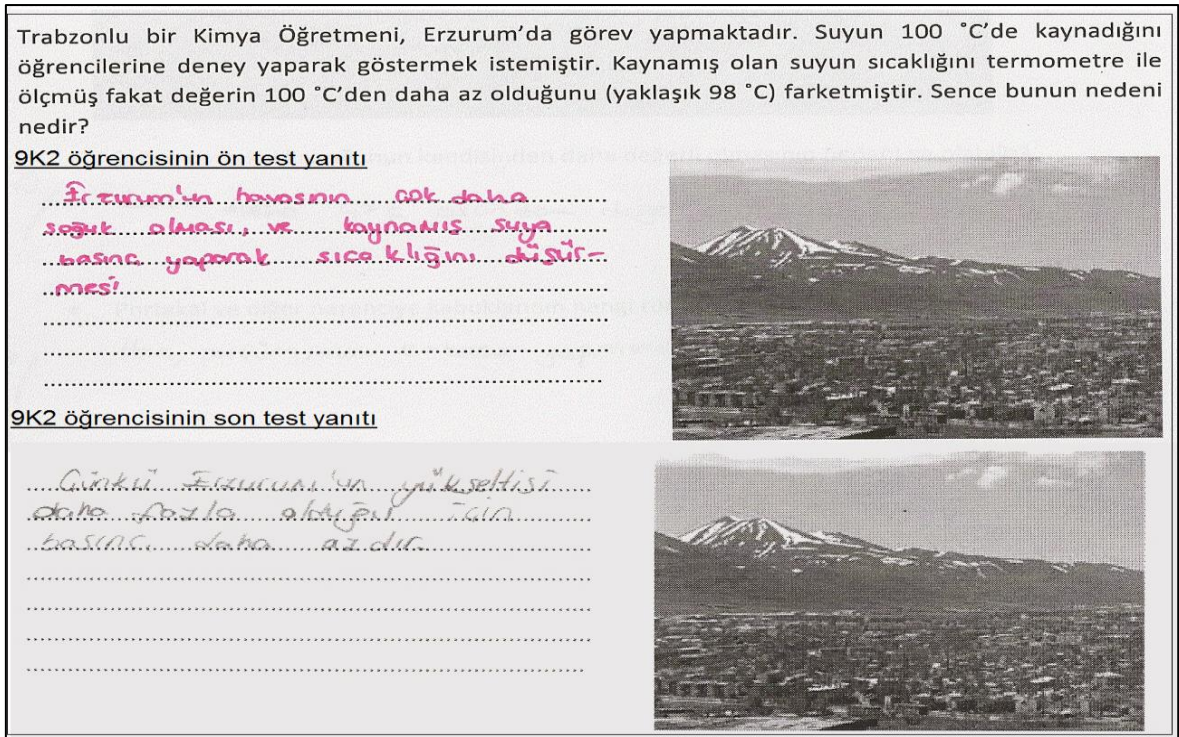 Trabzonlu bir Kimya Öğretmeni, Erzurum'da görev yapmaktadır. Suyun 100 ˚C'de kaynadığını
öğrencilerine deney yaparak göstermek istemiştir. Kaynamış olan suyun sıcaklığını termometre ile
ölçmüş fakat değerin 100 ˚C'den daha az olduğunu (yaklaşık 98 ˚C) farketmiştir. Sence bunun nedeni
nedir?
9K2 öğrencisinin ön test yanıtı
Erzurum'un havasının çok daha
soğuk olması, ve kaynamış suya
basınç yaparak sıcaklığını düşür-
mesi
9K2 öğrencisinin son test yanıtı
Çünkü Erzurum'un yükseltisi
daha fazla olduğu için
basınç daha azdır.